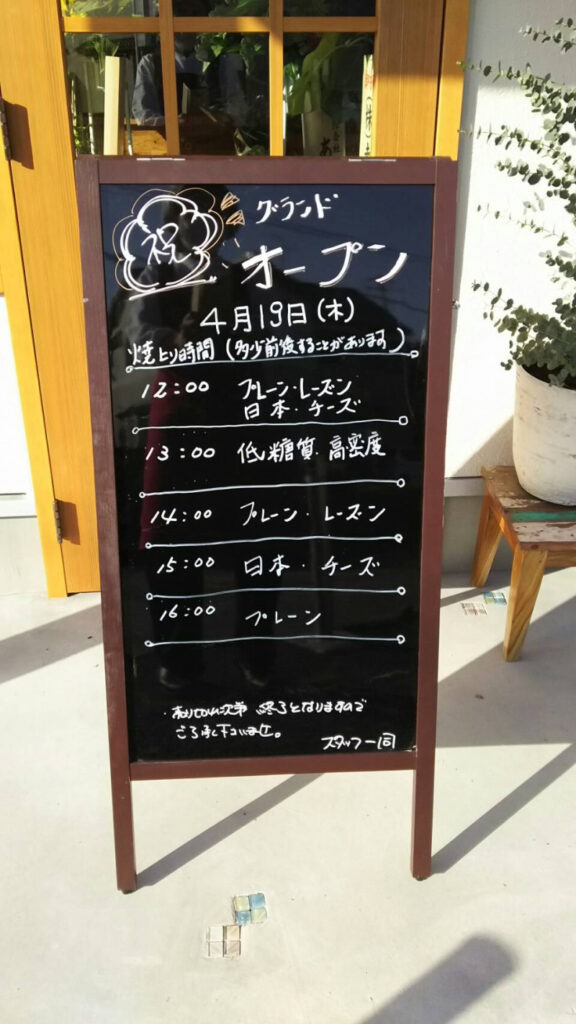 祝
グランド
オープン
4月19日(木)
焼上り時間(多少前後することがあります)
12:00 プレーン・レーズン
日本・チーズ
13:00 低糖質・高密度
14:00 プレーン・レーズン
15:00 日本・チーズ
16:00 プレーン
・売り切れ次第 終了となりますので
ご了承下さいませ。
スタッフ一同